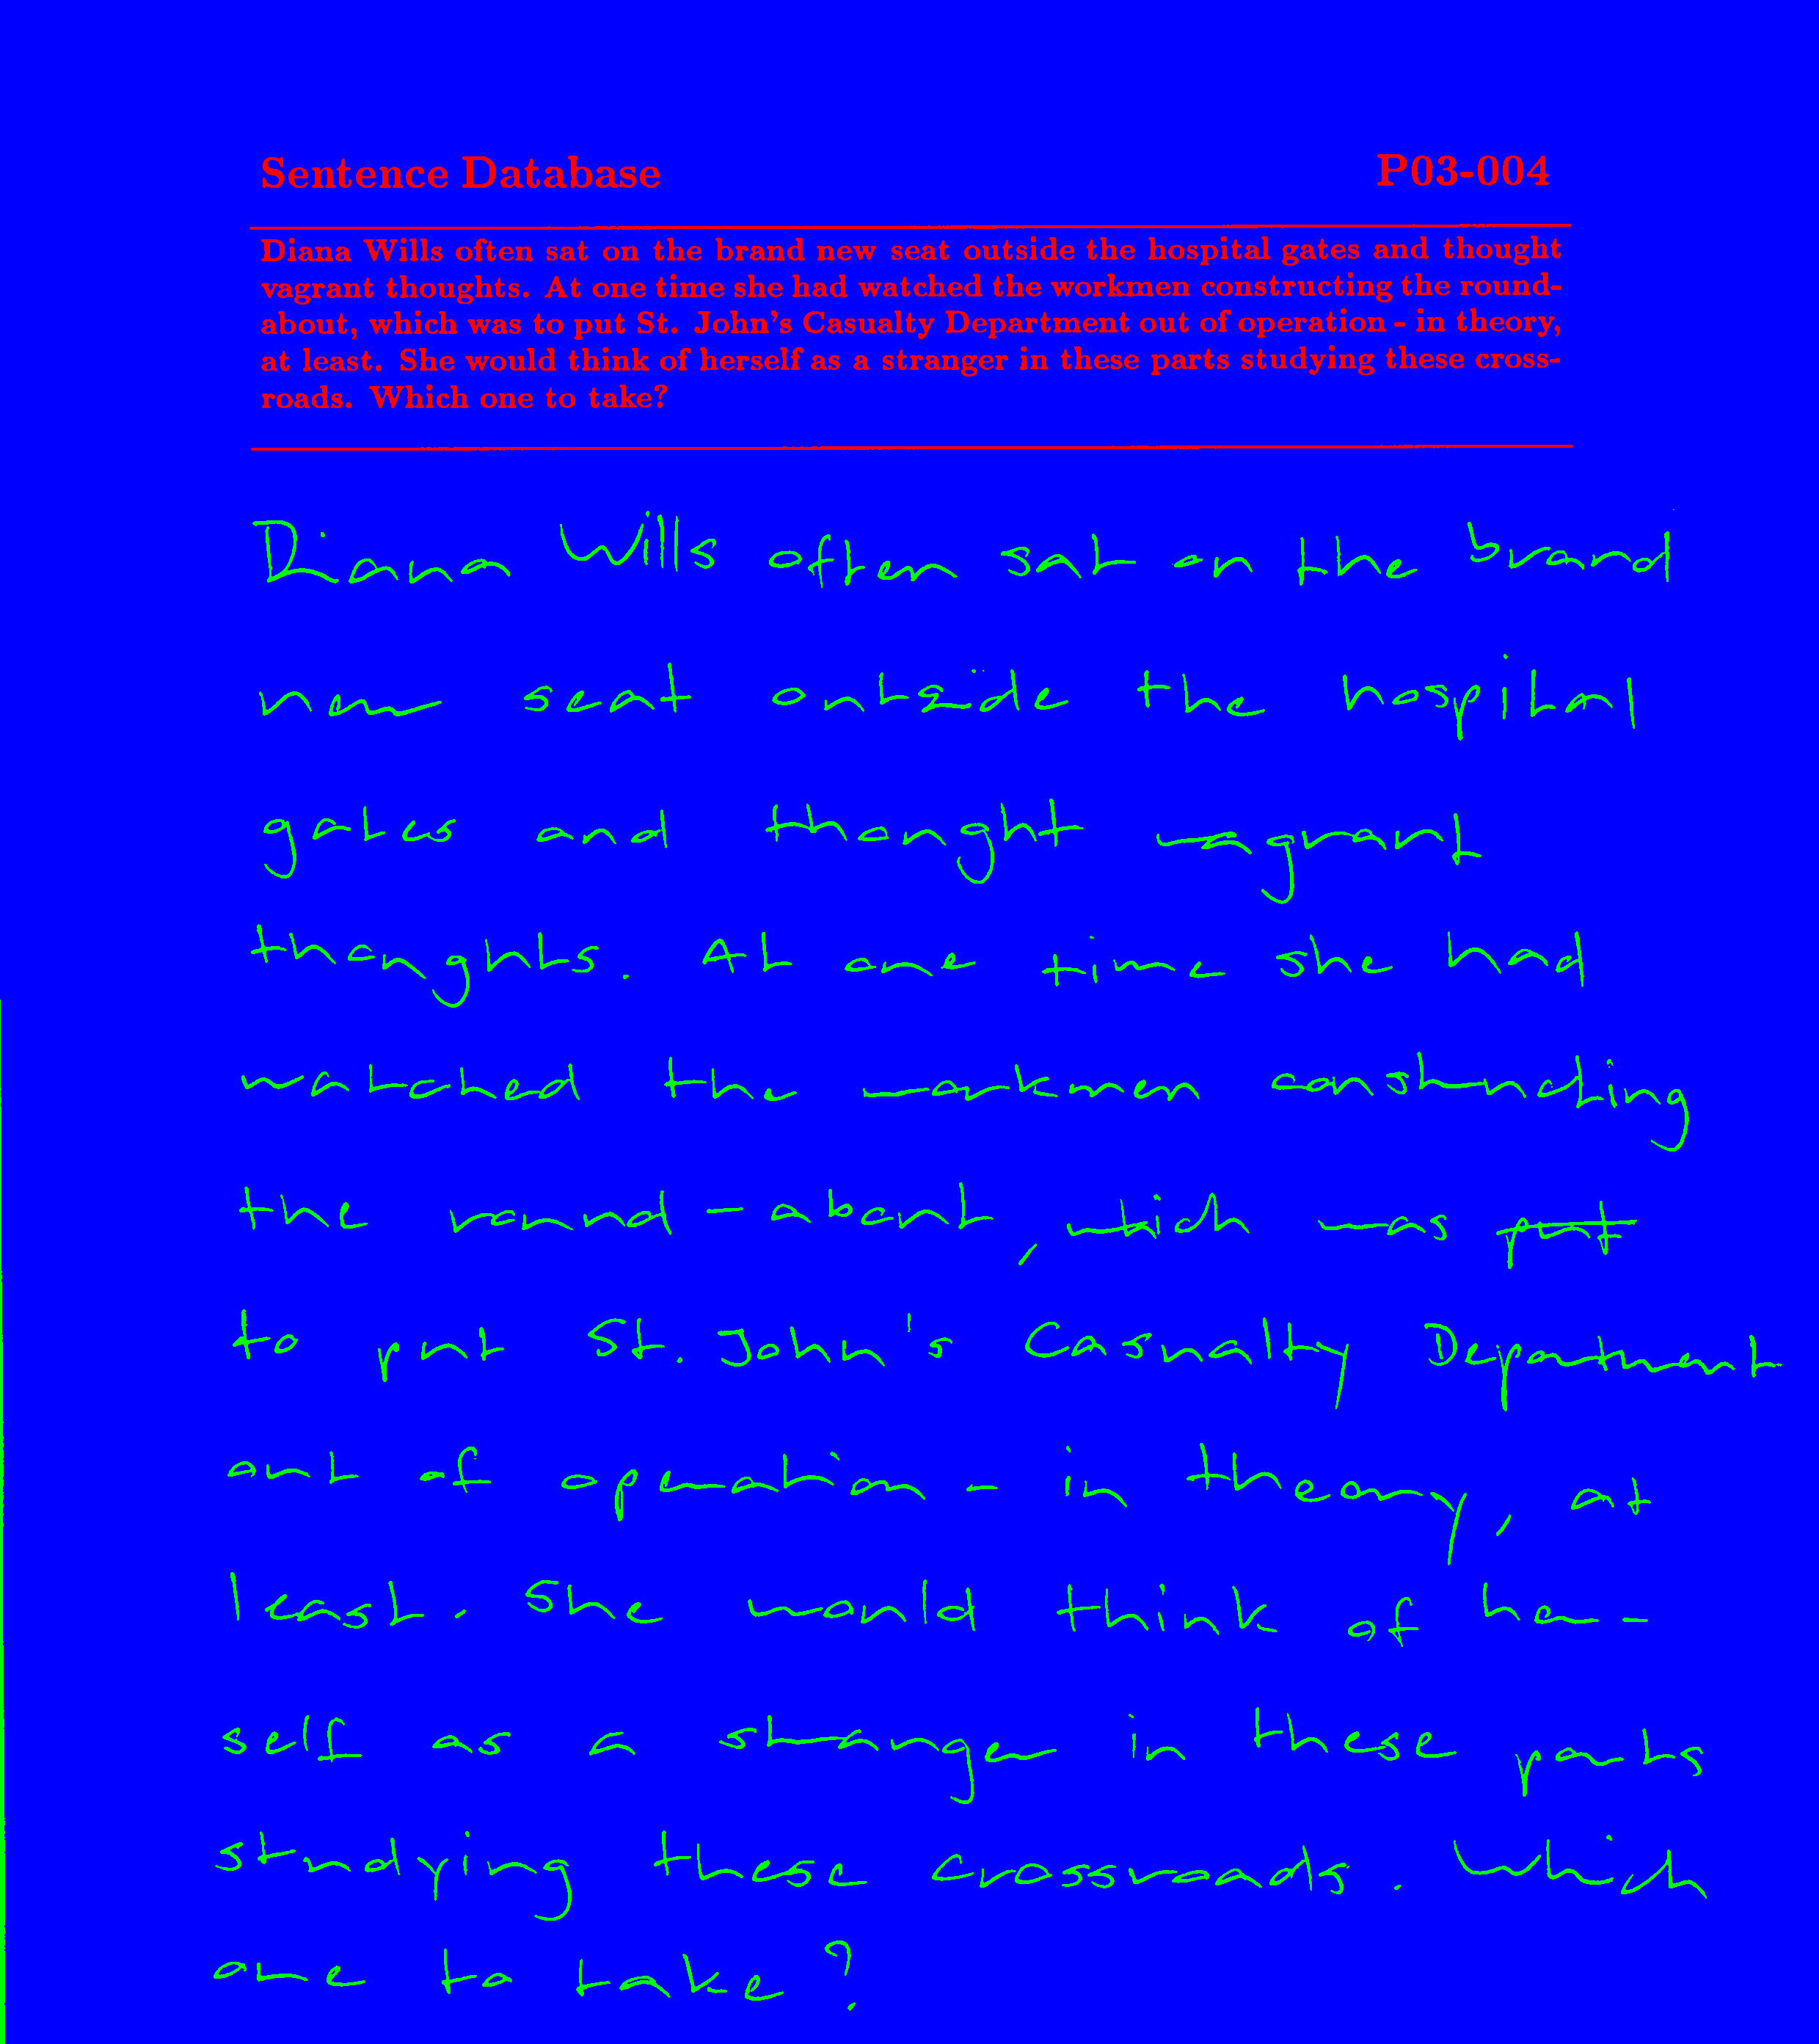 Sentence Database P03-004
Diana Wills often sat on the brand new seat outside the hospital gates and thought
vagrant thoughts. At one time she had watched the workmen constructing the round-
about, which was to put St. John's Casualty Department out of operation - in theory,
at least. She would think of herself as a stranger in these parts studying these cross-
roads. Which one to take?
Diana Wills often sat on the brand
new seat outside the hospital
gates and thought vagrant
thoughts. At one time she had
watched the workmen constructing
the round-about, which was put
to put St. John's Casualty Department
out of operation - in theory, at
least. She would think of her-
self as a stranger in these parts
studying these crossroads. Which
one to take?